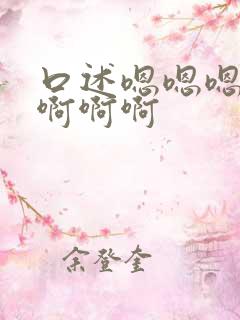 口述嗯嗯嗯
啊啊啊
余登奎